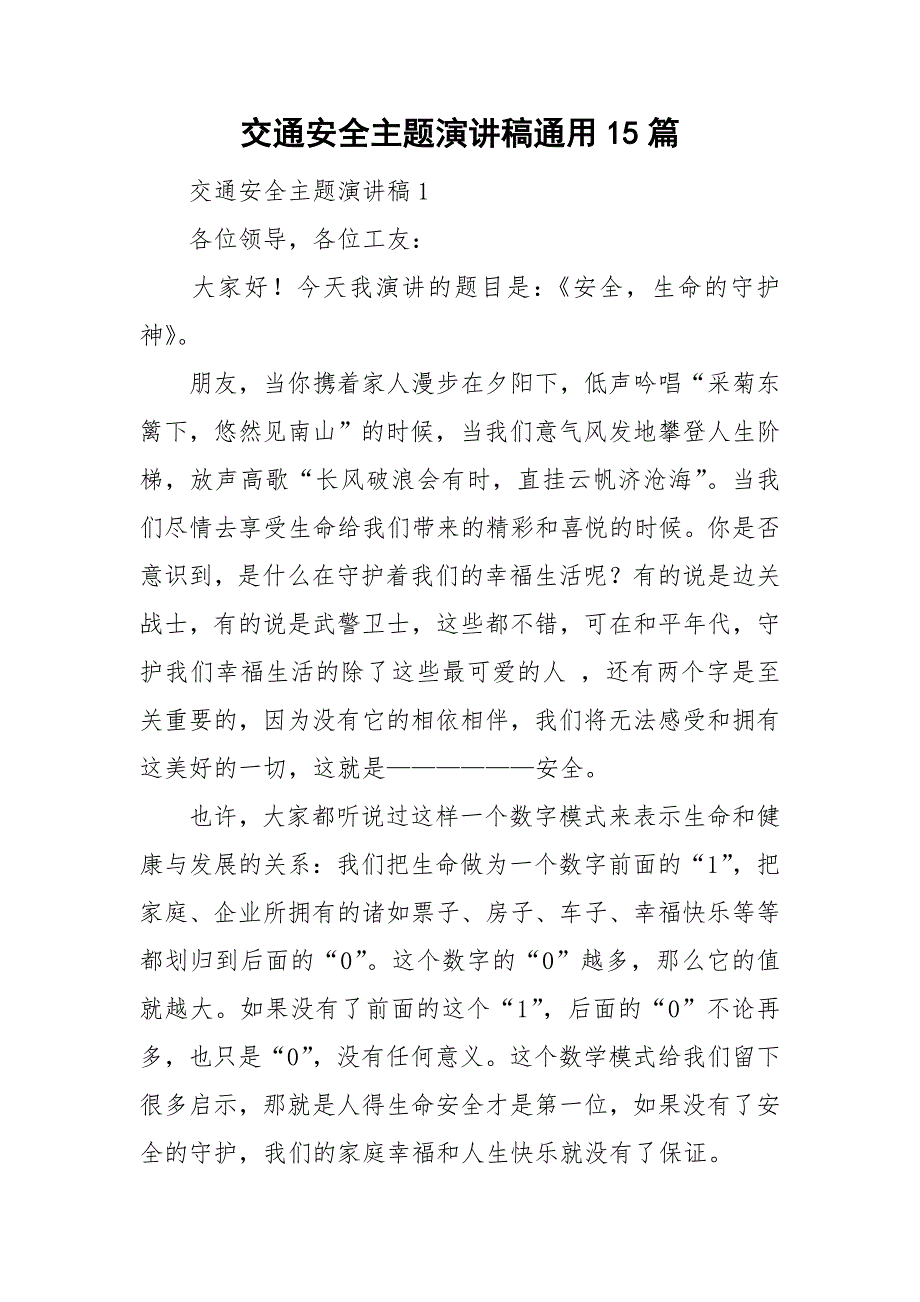 交通安全主题演讲稿通用 15 篇
交通安全主题演讲稿 1
各位领导，各位工友：
大家好！今天我演讲的题目是：《安全，生命的守护
神》。
朋友，当你携着家人漫步在夕阳下，低声吟唱“采菊东
篱下，悠然见南山”的时候，当我们意气风发地攀登人生阶
梯，放声高歌“长风破浪会有时，直挂云帆济沧海”。当我
们尽情去享受生命给我们带来的精彩和喜悦的时候。你是否
意识到，是什么在守护着我们的幸福生活呢？有的说是边关
战士，有的说是武警卫士，这些都不错，可在和平年代，守
护我们幸福生活的除了这些最可爱的人 ，还有两个字是至
关重要的，因为没有它的相依相伴，我们将无法感受和拥有
这美好的一切，这就是——————安全。
也许，大家都听说过这样一个数字模式来表示生命和健
康与发展的关系：我们把生命做为一个数字前面的“1”，把
家庭、企业所拥有的诸如票子、房子、车子、幸福快乐等等
都划归到后面的“0”。这个数字的“0”越多，那么它的值
就越大。如果没有了前面的这个“1”，后面的“0”不论再
多，也只是“0”，没有任何意义。这个数学模式给我们留下
很多启示，那就是人得生命安全才是第一位，如果没有了安
全的守护，我们的家庭幸福和人生快乐就没有了保证。